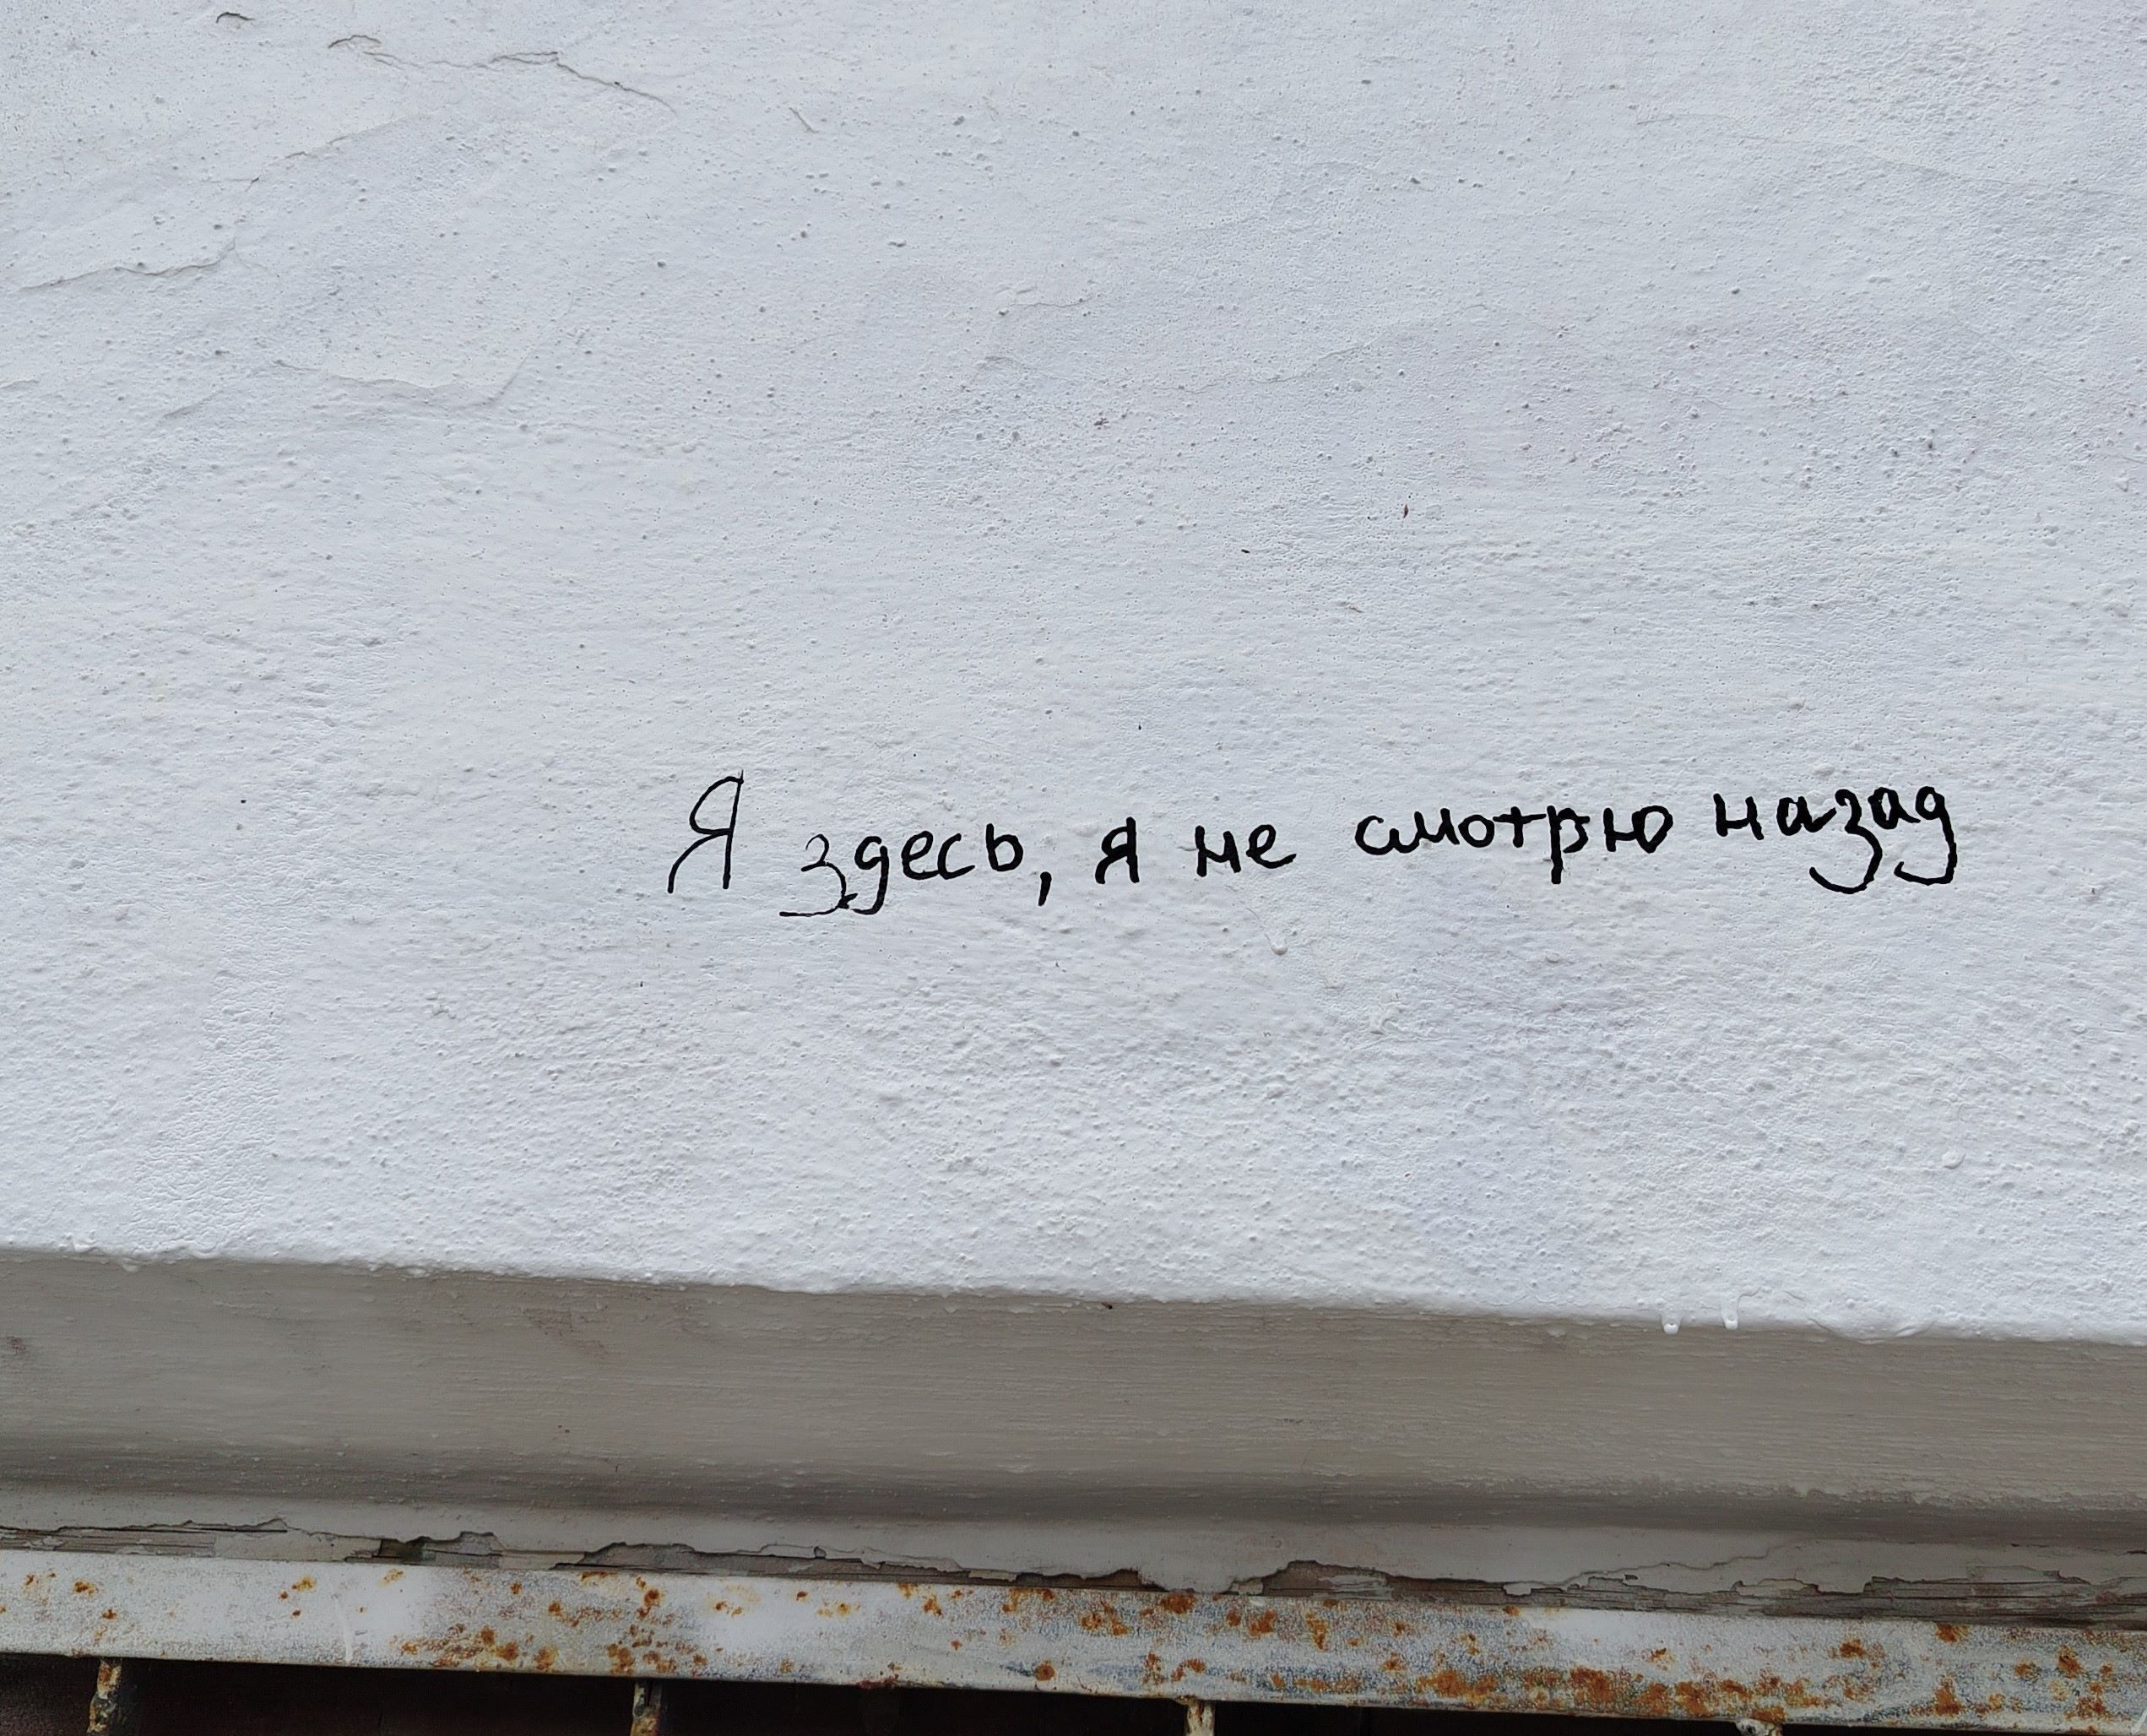 Я здесь, я не смотрю назад